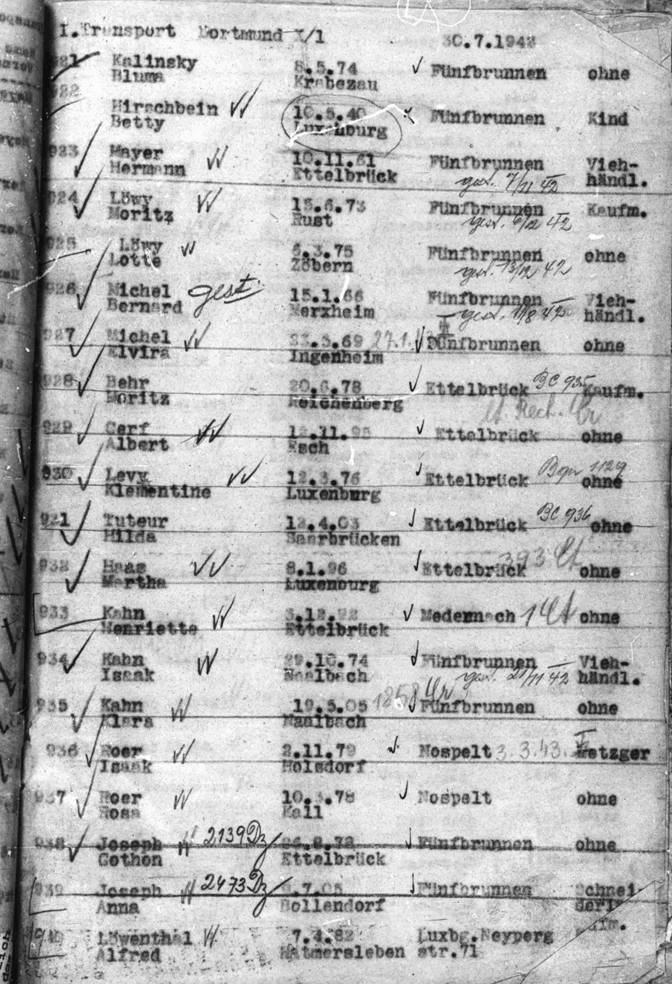 I.Transport Dortmund X/1 30.7.1942
921 Kalinsky 8.5.74 Fünfbrunnen ohne
Bluma Krabezau
922 Hirschbein 10.5.40 Fünfbrunnen Kind
Betty Luxemburg
923 Mayer 10.11.61 Fünfbrunnen Vieh-
Hermann Ettelbrück gest. 7/11 42 händl.
924 Löwy 15.6.73 Fünfbrunnen Kaufm.
Moritz Rust gest. 42
925 Löwy 6.3.75 Fünfbrunnen ohne
Lotte Zöbern gest. 13/12 42
926 Michel gest. 15.1.66 Fünfbrunnen Vieh-
Bernard Merxheim gest. 42 händl.
927 Michel 3.69 27.1. Fünfbrunnen ohne
Elvira Ingenheim
928 Behr 20.6.78 Ettelbrück BC 935 Kaufm.
Moritz Reichenberg
929 Cerf Ettelbrück ohne
Albert Esch
930 Levy 12.3.76 Ettelbrück 1129 ohne
Klementine Luxenburg
931 Tuteur 12.4.03 Ettelbrück BC 936 ohne
Hilda Saarbrücken
932 Haas 8.1.96 Ettelbrück 393 ohne
Martha Luxenburg
933 Kahn 3.12.92 Medernach ohne
Henriette Ettelbrück
934 Kahn 29.10.74 Fünfbrunnen Vieh-
Isaak Maalbach gest. 42 händl.
935 Kahn 19.5.05 1858 Fünfbrunnen ohne
Klara Maalbach
936 Roer 2.11.79 Nospelt 3.3.43. Metzger
Isaak Holsdorf
937 Roer 10.3.78 Nospelt ohne
Rosa Kall
938 Joseph 2139 Dz 8.72 Fünfbrunnen ohne
Gothon Ettelbrück
939 Joseph 2473 Dz 7.05 Fünfbrunnen Schnei
Anna Bollendorf
940 Löwenthal 7.4.82 Luxbg.Neyperg
Alfred Hatmersleben str.71